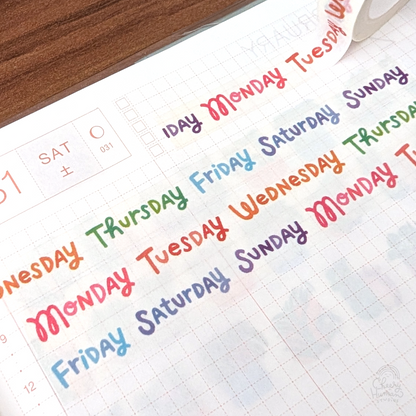 IDAY MONDAY TUESDAY W
FRIDAY SATURDAY SUNDAY
31 SAT 031
土
NESDAY THURSDAY WEDNESDAY THURSDAY
MONDAY TUESDAY SUNDAY MONDAY TU
FRIDAY SATURDAY
9
12